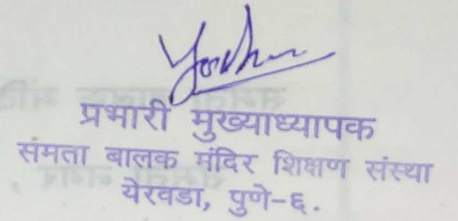 प्रभारी मुख्याध्यापक
संमता बालक मंदिर शिक्षण संस्था
येरवडा, पुणे-६.